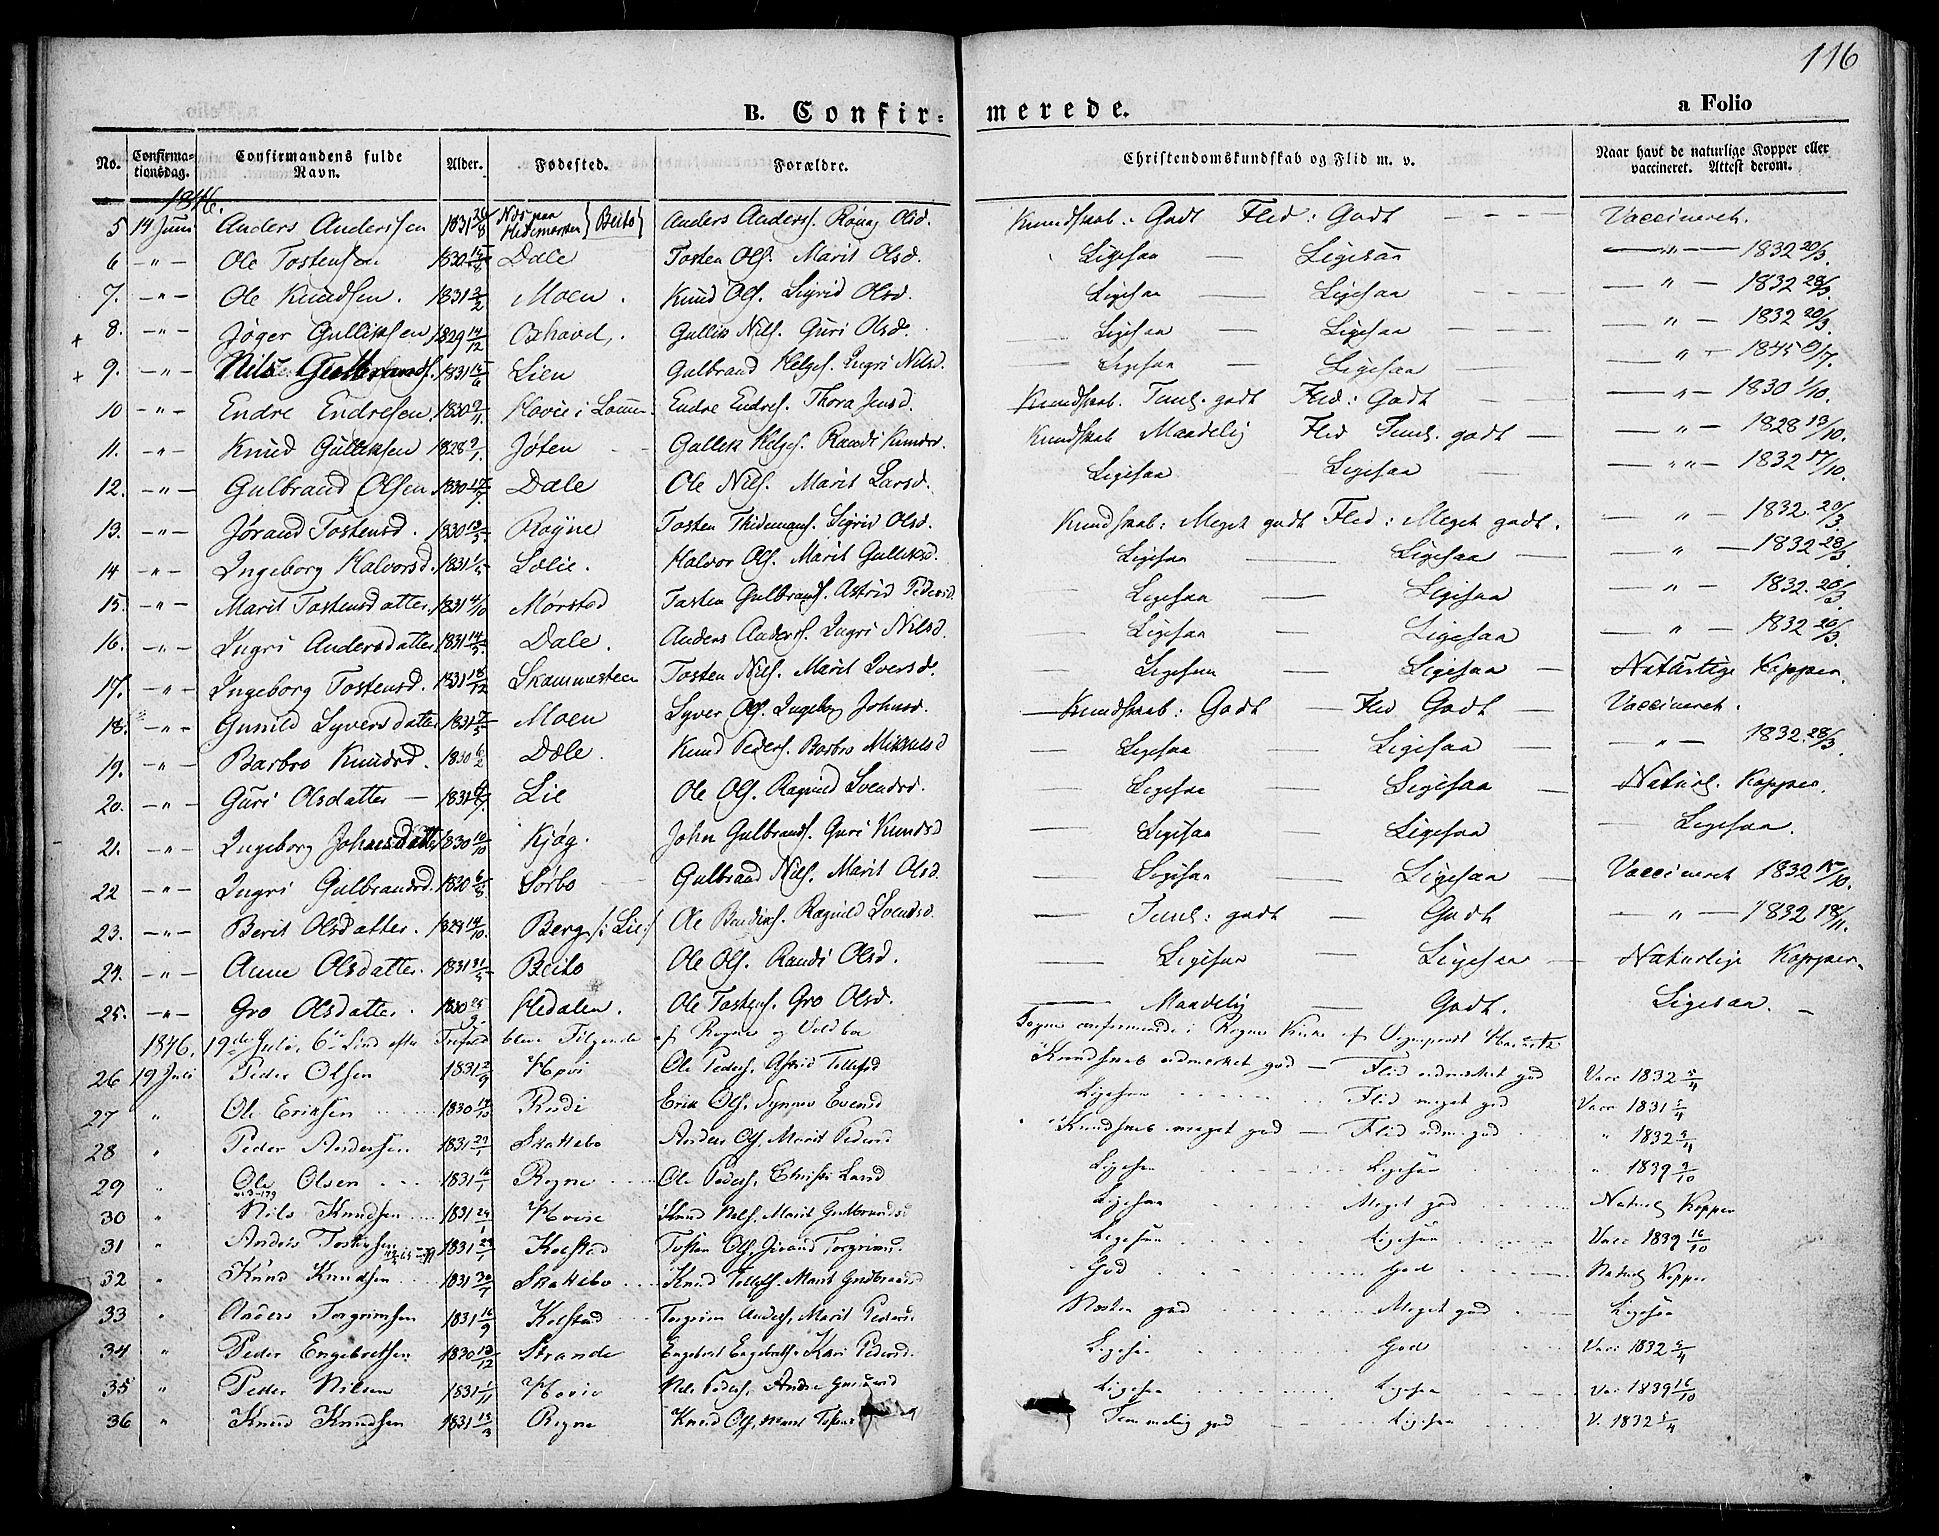 116
B. Confir= merede.
a Folio
No. Confirma-tionsdag. Confirmandens fulde Navn. Alder. Fødested. Forældre. Christendomskundskab og Flid m. v. Naar havt de naturlige Kopper eller vaccineret. Attest derom.
1846.
5 14 Juni Anders Anderssen 1831 Næs paa Hedemarken } Beito } Anders Anderss. Olsd. Kundskab: Godt Flid: Godt — — — Vaccineret.
6 —"— Ole Tostensen 1830 Dale Tosten Ols. Marit Olsd. Ligesaa — Ligesaa —"— 1832 20/3.
7. —"— Ole Knudsen. 1831 2/2 Moen. Knud Ols. Sigrid Olsd. Ligesaa — Ligesaa — —"— 1832 28/3.
8. —"— Jøger Gulliksen 1829 14/12 Gullik Nils. Guri Olsd. Ligesaa — Ligesaa — —"— 1832 20/3.
9. —"— Nils Gulbrands. 1831 Lien Gulbrand Helges. Ingri Nilsd. — Ligesaa — Ligesaa — —"— 1845 9/7.
10 —"— Endre Endresen. 1830 Hovie i Endre Endres. Thora Jensd. Kundskab. Teml. godt Flid: Godt — —"— 1830 1/10.
11. —"— Knud Gulliksen 1828 9/1. Jøten Gullik Helges. Randi Knudsd. Kundskab Maadelig Flid Teml. godt — —"— 1828 13/10.
12. —"— Gulbrand Olsen. 1830 17/7. Dale Ole Nils. Marit Larsd. Ligesaa — Ligesaa — —""— 1832 17/10.
13. —"— Jørand Tostensd. 1830 13/5 Røyne Tosten Thidemans. Sigrid Olsd. Kundskab: Meget godt Flid: Meget godt. —"— 1832. 20/3.
14 —"— Ingeborg Halvorsd. 1831 Lælie. Halvor Ols. Marit Gulliksd. Ligesaa — Ligesaa — —"— 1832 28/3.
15. —"— Marit Tostensdatter. 1831 4/10 Mørstad Tosten Gulbrans. Astrid Pedersd. — Ligesaa — Ligesaa —"— 1832. 20/3.
16. —"— Ingri Andersdatter 1831 14/5. Dale. Anders Anderss. Ingri Nilsd. — Ligesaa — Ligesaa —"— 1832 20/3.
17. —"— Ingeborg Tostensd. 1831 18/12 Skammesteen Tosten Nils. Marit Iversd. — Ligesaa — Ligesaa — Naturlige Kopper.
18. —"— Gunild Syversdatter 1831 Moen Syver Ols. Ingeborg Johnsd. — Kundskab: Godt — Flid Godt — Vaccineret.
19. —"— Barbro Knudsd. 1830 6/2 Dale. Knud Peders. Barbro Mikkelsd — Ligesaa — Ligesaa — —"— 1832. 28/3.
20. —"— Guri Olsdatter — 1831 Lie Ole Ols. Ragnild Svendsd. — Ligesaa — Ligesaa — Naturl. Kopper.
21. —"— Ingeborg Johnsdatter 1830 10/10 Kjøg. John Gulbrands. Guri Knudsd — Ligesaa — Ligesaa — — Ligesaa.
22 —"— Ingri Gulbrandsd. 1830 6/8 Sørbo Gulbrand Nils. Marit Olsd. — Ligesaa — Ligesaa — Vaccineret 1832 15/10.
23. —"— Berit Olsdatter. 1829 14/10. Berg /: Lie :/ Ole Ragnild Svendsd. — Teml: godt — Godt —"— 1832 18/11.
24. —"— Anne Olsdatter. 1831 31/5 Beito Ole Ols. Randi Olsd. — Ligesaa — Ligesaa — Naturlige Kopper.
25. —"— Gro Olsdatter. 1830 Hedalen. Ole Tostens. Gro Olsd. — Maadelig — Godt. Ligesaa. —
1846. 19de Juli, 6te Sønd efter Trefoed bleve Følgende af Rogne og Voldbo Sogne confirmerede i Rogne Kirke af Sogneprest
26 19 Juli Peder Olsen 1831 2/9 Hovi Ole Peders, Astrid Tollefsd Kundskab udmerket god — Flid udmerket god Vacc 1832 5/4
27 " Ole Eriksen 1830 Rudi Erik Ols, Synnev Evensd Ligesaa Flid meget god Vacc 1831 5/4
28 " Peder Andersen 1831 27/1 Skattebo Anders Ols, Marit Pedersd Kundskab meget god — Flid udm. god " 1832 3/4
29 " Ole Olsen 1831 16/1 Rogne Ole Peders, Ligesaa Ligesaa " 1839 9/10
30 " Nils Knudsen 1831 24/1 Hovie Knud Nels, Marit Gulbrandsd Ligesaa Meget god Naturl Kopper
31 " Anders Tostensen 1831 29/1 Kolstad Tosten Ols, Jørand Torgrimsd. Ligesaa Ligesaa Vacc 1839 16/10
32 " Knud Knudsen 1831 30/7 Skattebo Knud Tollefs. Marit Gulbrandsd God God Naturl Kopper
33 " Anders Torgrimsen 1831 16/9 Kolstad Torgrim Anders, Marit Pedersd. Næsten god Meget god Ligesaa
34 " Peder Engebretsen 1830 13/12 Strande Engebret Engebrets. Kari Pedersd. Ligesaa God Vacc 1832 5/4
35 " Peder Nilsen 1831 1/11 Hovie Nils Peders, Ligesaa Ligesaa Vac 1839 16/10
36 " Knud Knudsen 1831 13/3 Rogne Knud Ols, Marit Temmelig god — Ligesaa V. 1832 5/4